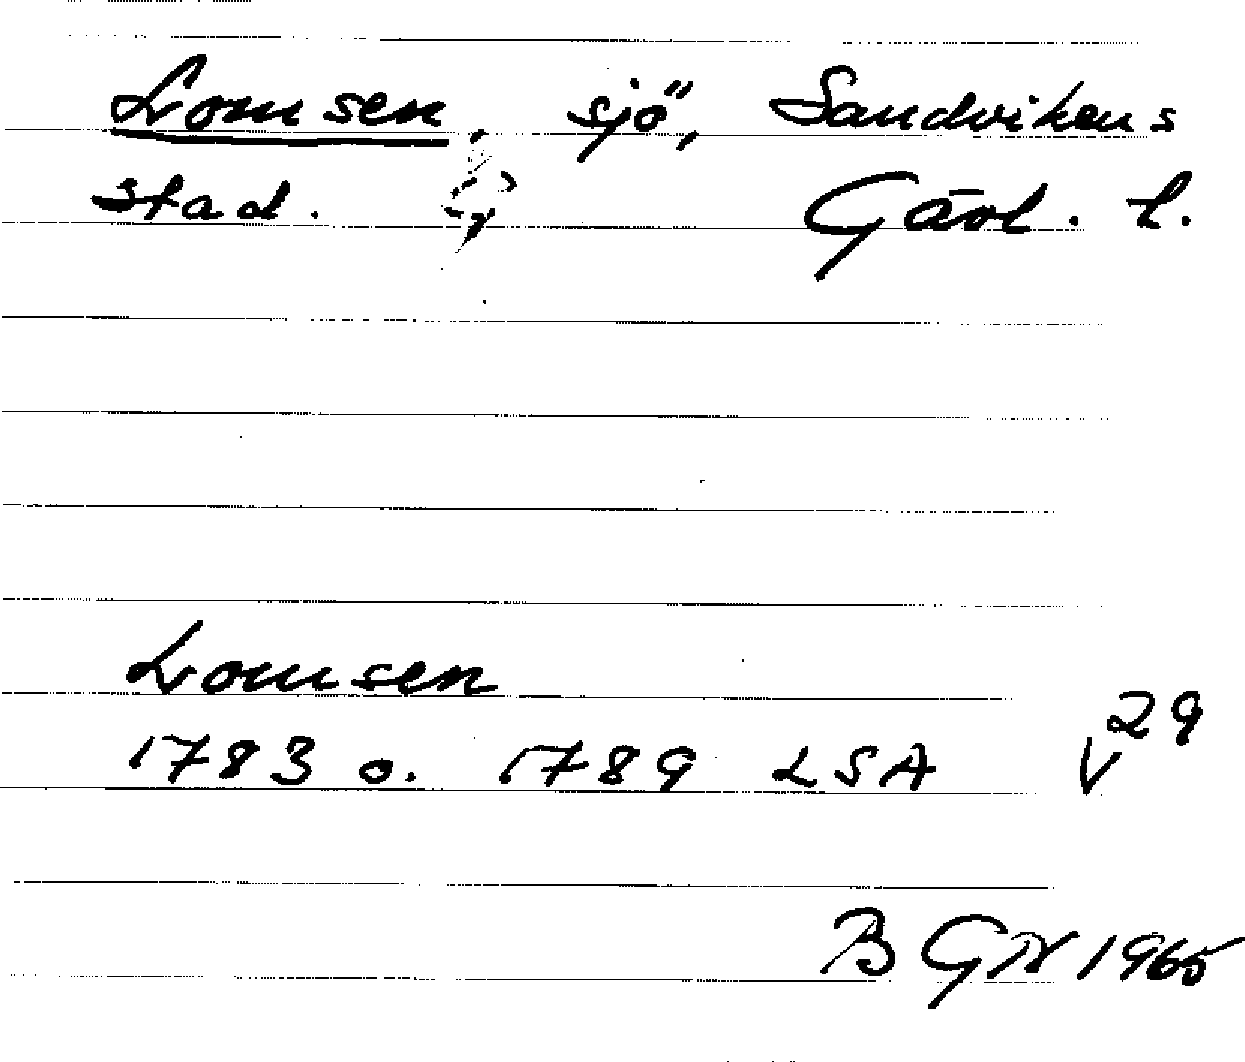 Lomsen, sjö, Sandvikens
stad. Gävl. l.
Lomsen
1783 o. 1789 LSA V 29
B GN 1965